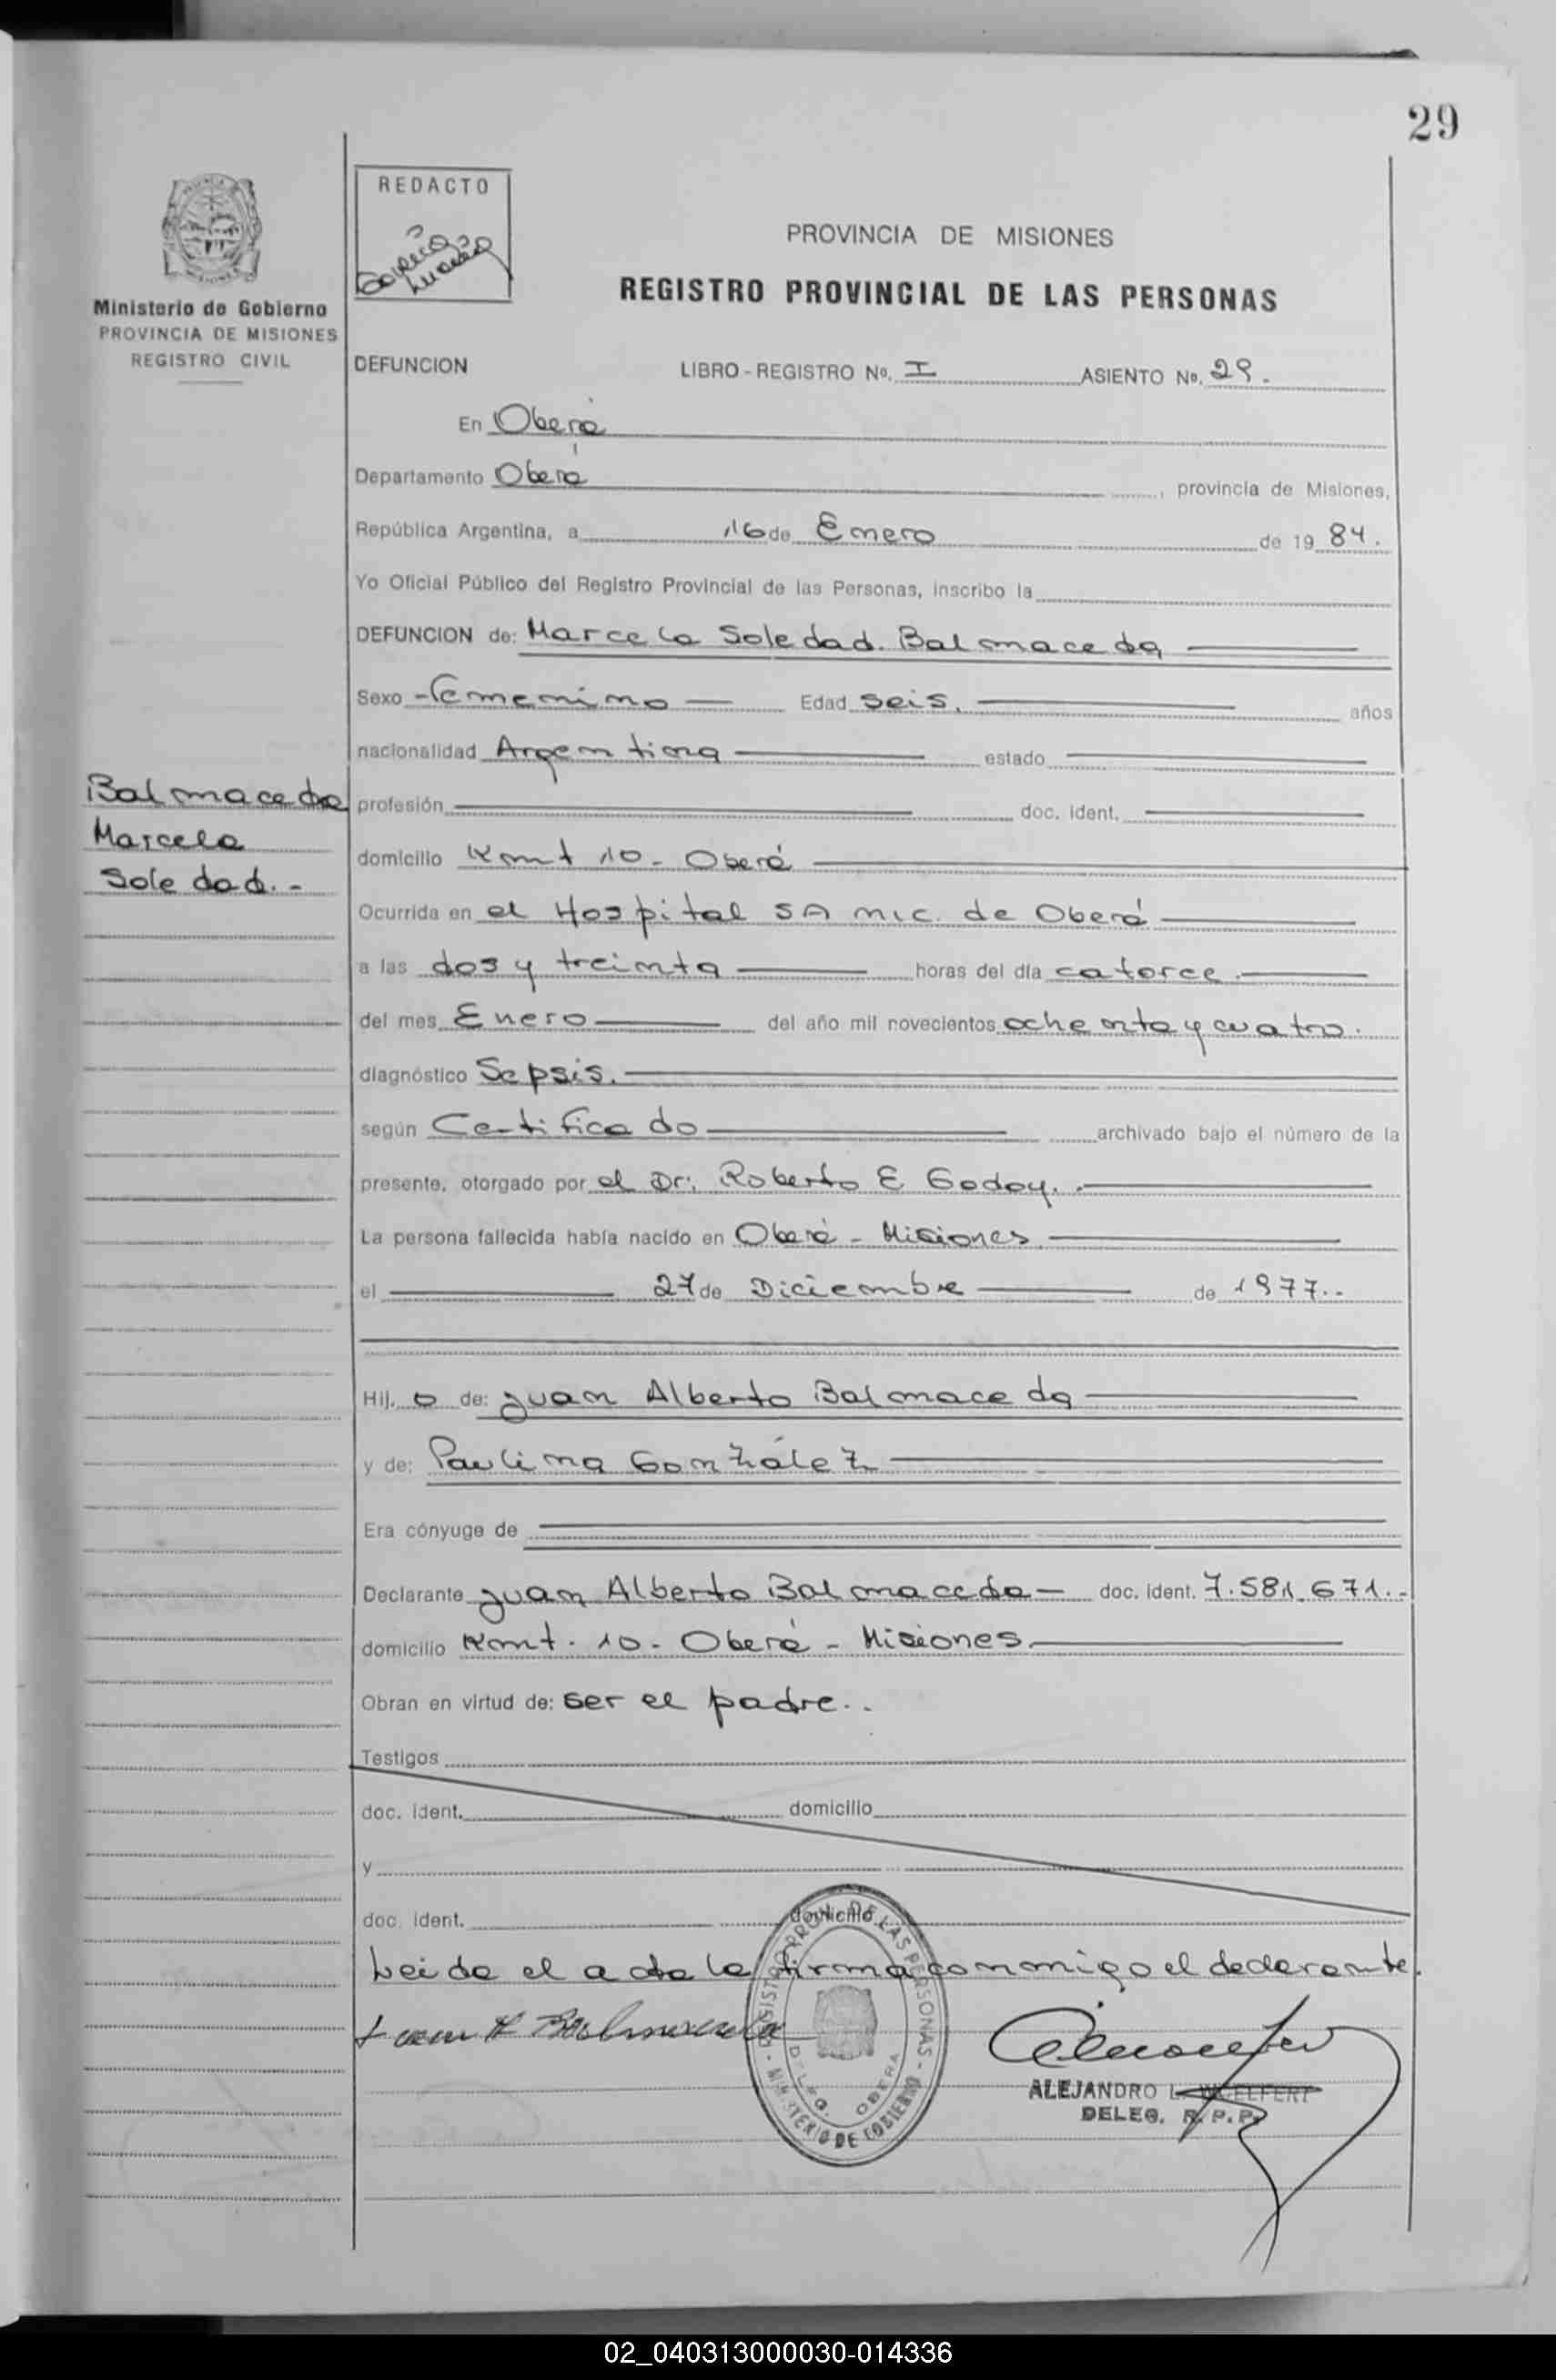 29
REDACTO
PROVINCIA DE MISIONES
REGISTRO PROVINCIAL DE LAS PERSONAS
Ministerio de Gobierno
PROVINCIA DE MISIONES
REGISTRO CIVIL
DEFUNCION LIBRO - REGISTRO Nº. I ASIENTO Nº. 29.
En Oberá
Departamento Oberá, provincia de Misiones,
República Argentina, a 16 de Enero de 19 84.
Yo Oficial Público del Registro Provincial de las Personas, inscribo la
DEFUNCION de: Marcela Soledad. Balmaceda
Sexo femenino Edad seis. años
nacionalidad Argentina estado
Balmaceda
Marcela
Soledad.-
profesión doc. ident.
domicilio Kmt 10 - Oberá
Ocurrida en el Hospital SAMIC. de Oberá
a las dos y treinta horas del día catorce.
del mes Enero del año mil novecientos ochenta y cuatro.
diagnóstico Sepsis.
según Certificado archivado bajo el número de la
presente, otorgado por el Dr: Roberto E Godoy.
La persona fallecida había nacido en Oberá - Misiones
el 27 de Diciembre de 1977..
Hij. o de: Juan Alberto Balmaceda
y de: Paulina González
Era cónyuge de
Declarante Juan Alberto Balmaceda - doc. ident. 7.581.671..-
domicilio Kmt. 10 - Oberá - Misiones
Obran en virtud de: ser el padre..
Testigos
doc. ident. domicilio
y
doc. ident. domicilio
Leida el acta la firma conmigo el declarante.
Juan A Balmaceda
REGISTRO PROV. DE LAS PERSONAS - MINISTERIO DE GOBIERNO
DELEG. OBERA
ALEJANDRO L.
DELEG. R. P. P.
02_040313000030-014336